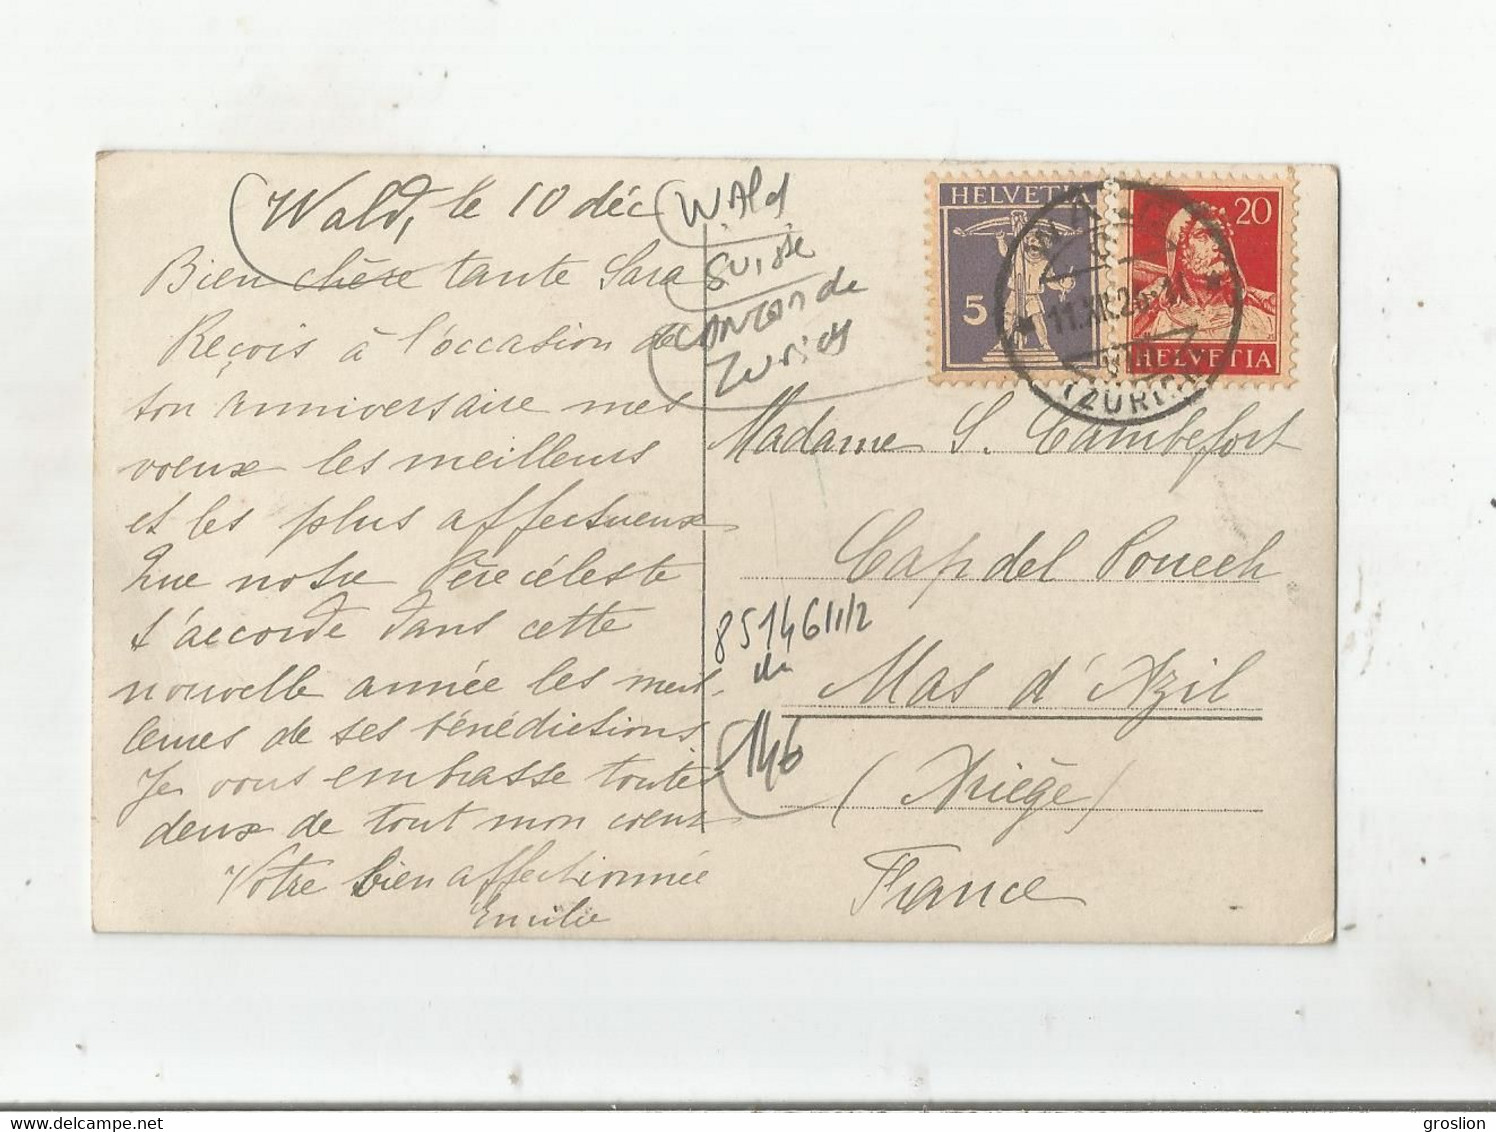 Wald, le 10 déc
Bien chère tante Sara
Reçois à l'occasion de
ton anniversaire mes
voeux les meilleurs
et les plus affectueux
Que notre Père céleste
t'accorde dans cette
nouvelle année les meil-
leures de ses bénédictions
Je vous embrasse toutes
deux de tout mon coeur
Votre bien affectionnée
Emilie
Wald
Suisse
Canton de
Zurich
HELVETIA
5
20
HELVETIA
WALD
11.XII.26
(ZÜRICH)
Madame S. Cambefort
Cap del Pouech
Mas d'Azil
(Ariège)
France
8514611/2
du
146
groslion